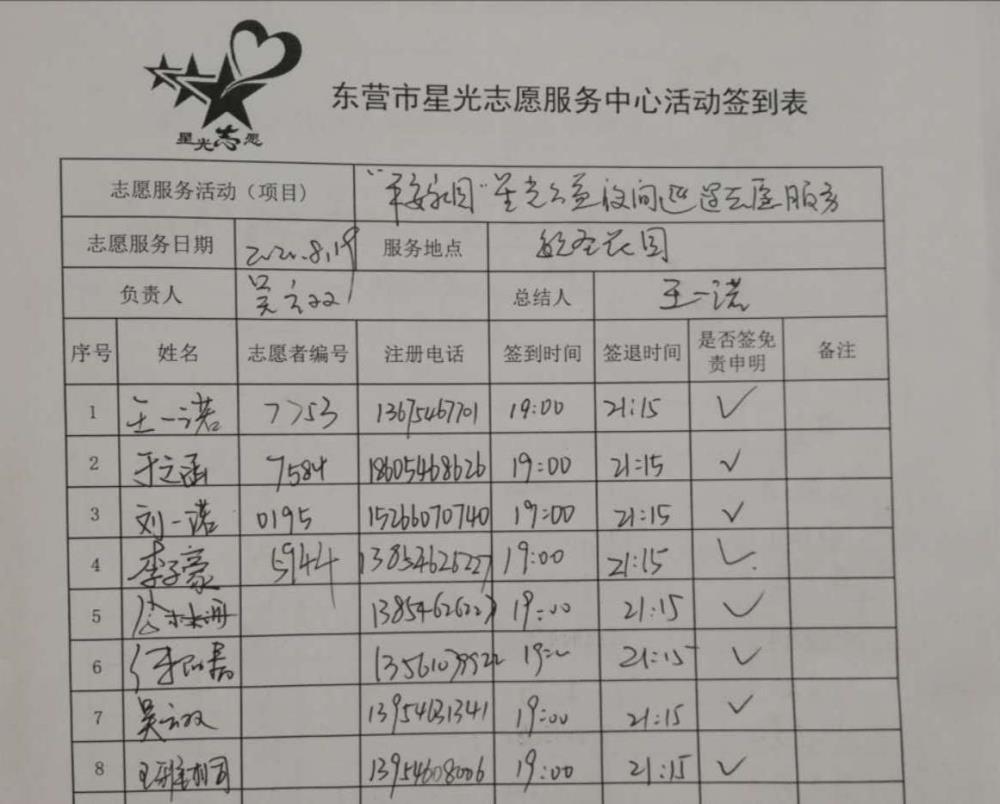 星光志愿
东营市星光志愿服务中心活动签到表
志愿服务活动（项目） "平安家园"星光公益夜间巡逻志愿服务
志愿服务日期 2020.8.19 服务地点 花园
负责人 吴云双 总结人 王一诺
序号 姓名 志愿者编号 注册电话 签到时间 签退时间 是否签免责申明 备注
1 王一诺 7753 13675467701 19:00 21:15 ✓
2 于之涵 7584 18605468626 19:00 21:15 ✓
3 刘一诺 0195 15266070740 19:00 21:15 ✓
4 李子豪 5944 13854626227 19:00 21:15 ✓
5 13854626227 19:00 21:15 ✓
6 21:15 ✓
7 吴云双 13954631341 19:00 21:15 ✓
8 13954608006 19:00 21:15 ✓